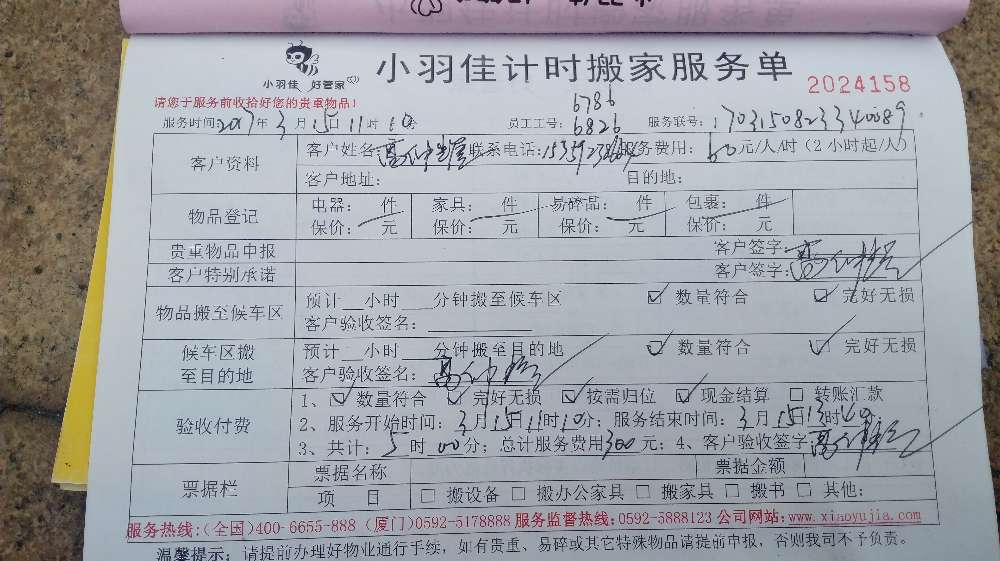 小羽佳 好管家
小羽佳计时搬家服务单
2024158
请您于服务前收拾好您的贵重物品!
6786
服务时间2017年3月15日11时10分 员工工号: 6826 服务联号: 1703150823340089
客户资料 客户姓名: 联系电话: 服务费用: 60元/人/时(2小时起/人)
客户地址: 目的地:
物品登记 电器: 件 家具: 件 易碎品: 件 包裹: 件
保价: 元 保价: 元 保价: 元 保价: 元
贵重物品申报 客户签字:
客户特别承诺 客户签字:
物品搬至候车区 预计__小时___分钟搬至候车区 ☑ 数量符合 ☑ 完好无损
客户验收签名:
候车区搬至目的地 预计__小时___分钟搬至目的地 ☑ 数量符合 ☑ 完好无损
客户验收签名:
验收付费 1、☑ 数量符合 ☑ 完好无损 ☑ 按需归位 ☑ 现金结算 □ 转账汇款
2、服务开始时间: 3月15日11时10分; 服务结束时间: 3月15日13时40分;
3、共计: 5时00分; 总计服务费用300元; 4、客户验收签字
票据栏 票据名称 票据金额
项 目 □ 搬设备 □ 搬办公家具 □ 搬家具 □ 搬书 □ 其他:
服务热线:(全国)400-6655-888 (厦门)0592-5178888 服务监督热线: 0592-5888123 公司网站: www.xiaoyujia.com
温馨提示: 请提前办理好物业通行手续, 如有贵重、易碎或其它特殊物品请提前申报, 否则我司不予负责。